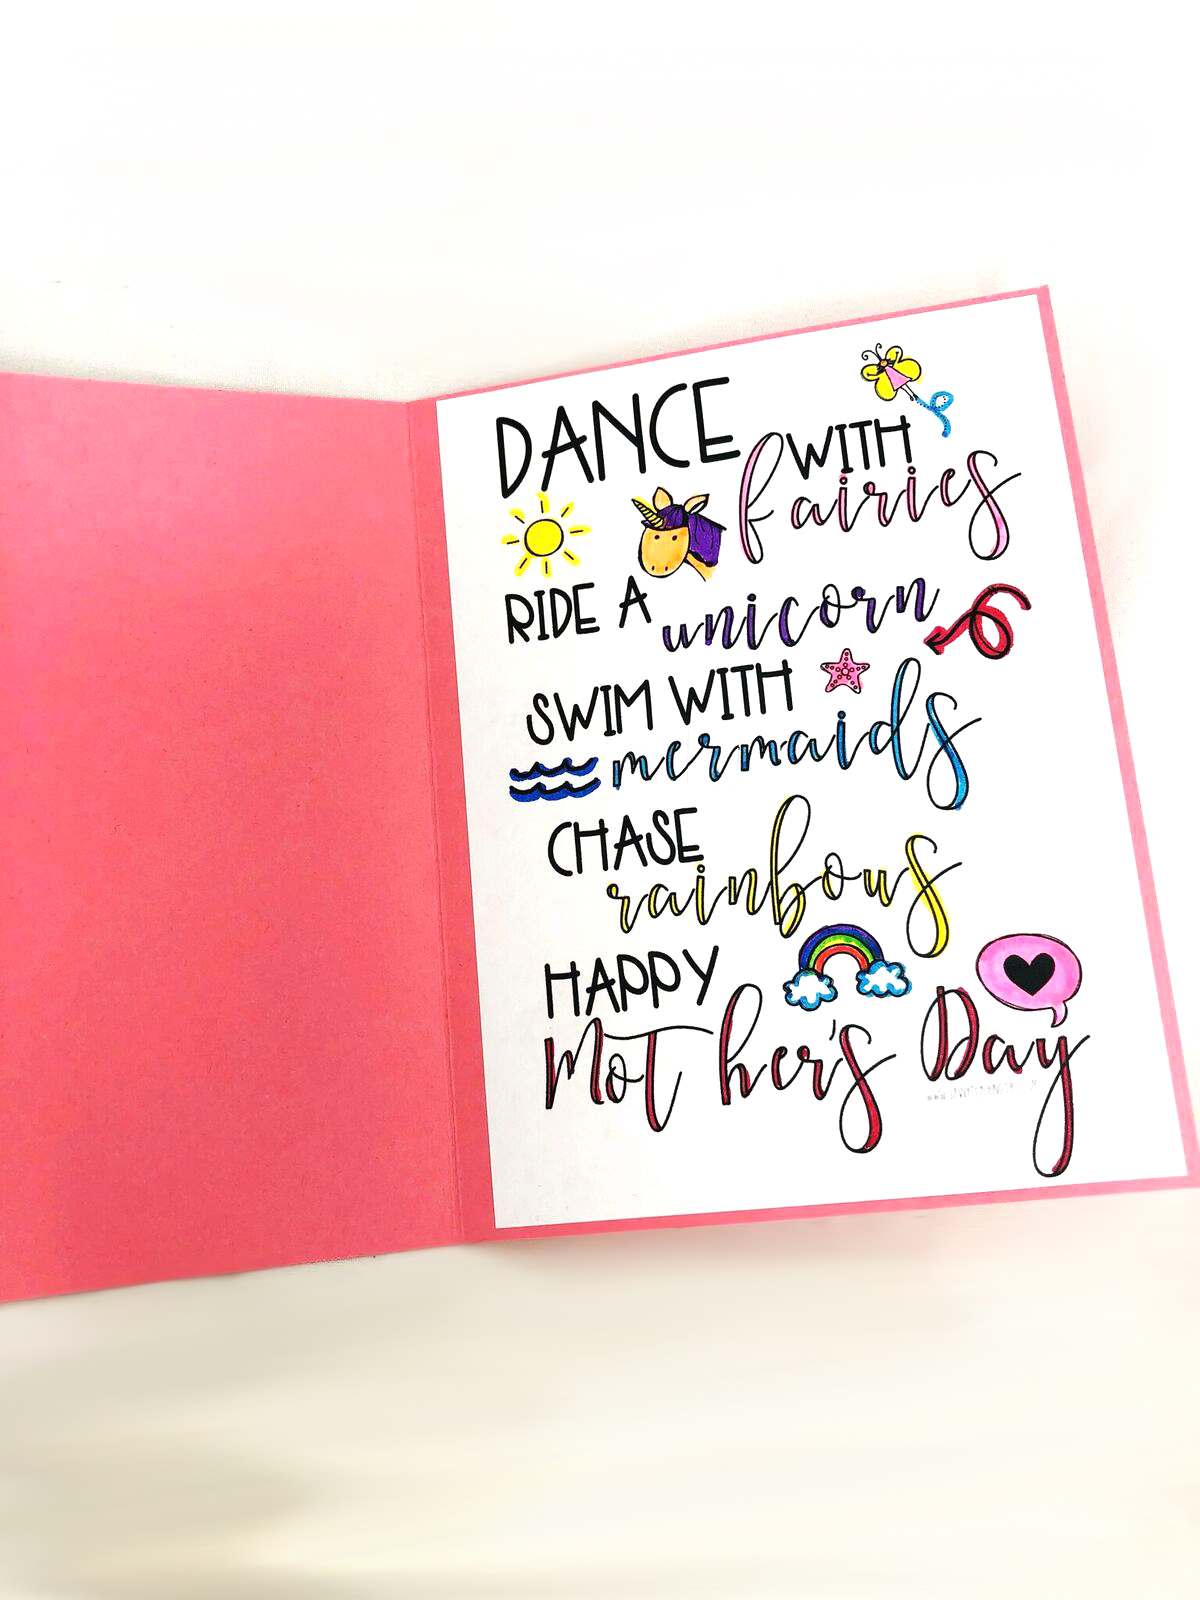 DANCE
WITH
fairies
RIDE A
unicorn
SWIM WITH
mermaids
CHASE
rainbows
HAPPY
Mother's Day